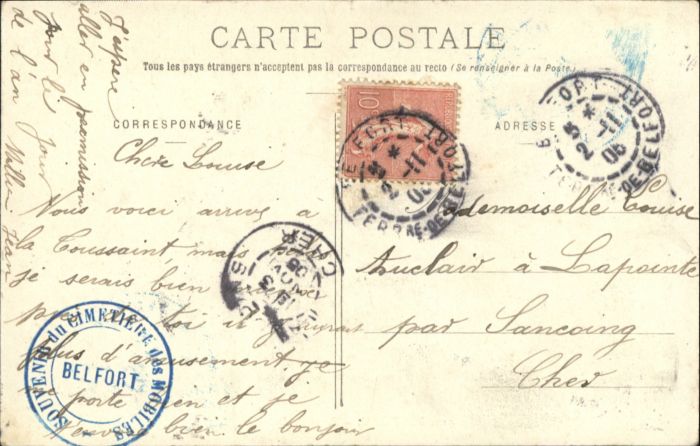 CARTE POSTALE
Tous les pays étrangers n'acceptent pas la correspondance au recto (Se renseigner à la Poste.)
CORRESPONDANCE
ADRESSE
J'espère
aller en permission
pour le jour
de l'an
Jean
Chère Louise
Nous voici arrivé à
la Toussaint, mais
je serais bien
toi
plus d'amusement, je
porte bien et je
t'envoie bien le bonjour
10
BELFORT
2 -11
06
TERRE-DE-BELFORT
BELFORT
2 -11
06
TERRE-DE-BELFORT
CHER
Mademoiselle Louise
Auclair à Lapointe
par Sancoing
Cher
SOUVENIR du CIMETIÈRE des MOBILES
BELFORT